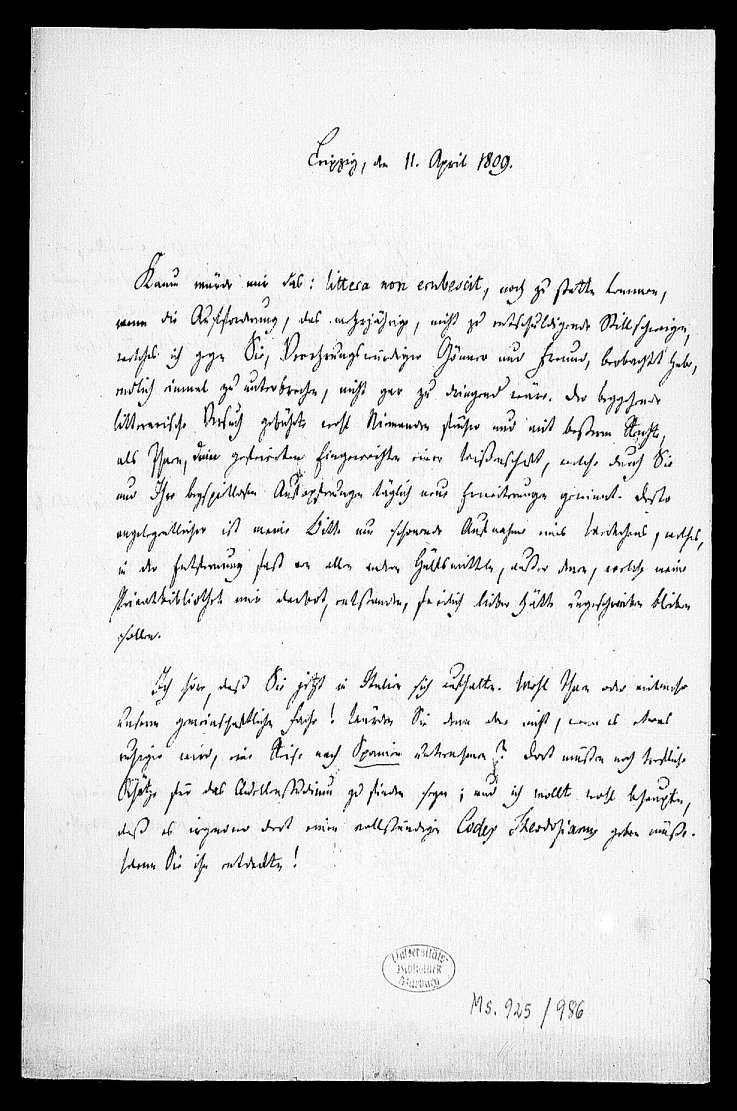 Leipzig, den 11. April 1809.
Kaum würde mir das: littera non erubescit, noch zu statten kommen,
wenn die Aufforderung, das mehrjährige, nicht zu entschuldigende Stillschweigen,
welches ich gegen Sie, Verehrungswürdiger Gönner und Freund, beobachtet habe,
endlich einmal zu unterbrechen, nicht gar zu dringend wäre. Der beygehende
litterarische Versuch gebührte wohl Niemanden früher und mit besserem Rechte,
als Ihnen, dem gefeierten Eingeweihten einer Wissenschaft, welche durch Sie
und Ihre beyspiellosen Aufopferungen täglich neue Erweiterungen gewinnt. Desto
angelegentlicher ist meine Bitte um schonende Aufnahme eines Werkchens, welches,
in der Entfernung fast von allen andern Hülfsmitteln, ausser denen, welche meine
Privatbibliothek mir darbot, entstanden, freilich lieber hätte ungeschrieben bleiben
sollen.
Ich höre, daß Sie jetzt in Italien sich aufhalten. Wohl Ihnen oder vielmehr
unserm gemeinschaftlichen Fache! Würden Sie denn aber nicht, wenn es etwas
ruhiger wird, eine Reise nach Spanien unternehmen? Dort müßten noch treffliche
Schätze für das Quellenstudium zu finden seyn; und ich wollte wohl behaupten,
daß es irgendwo dort einen vollständigen Codex Theodosianus geben müße.
Wenn Sie ihn entdeckten!
Universitäts-
Bibliothek
Marburg
Ms. 925/986